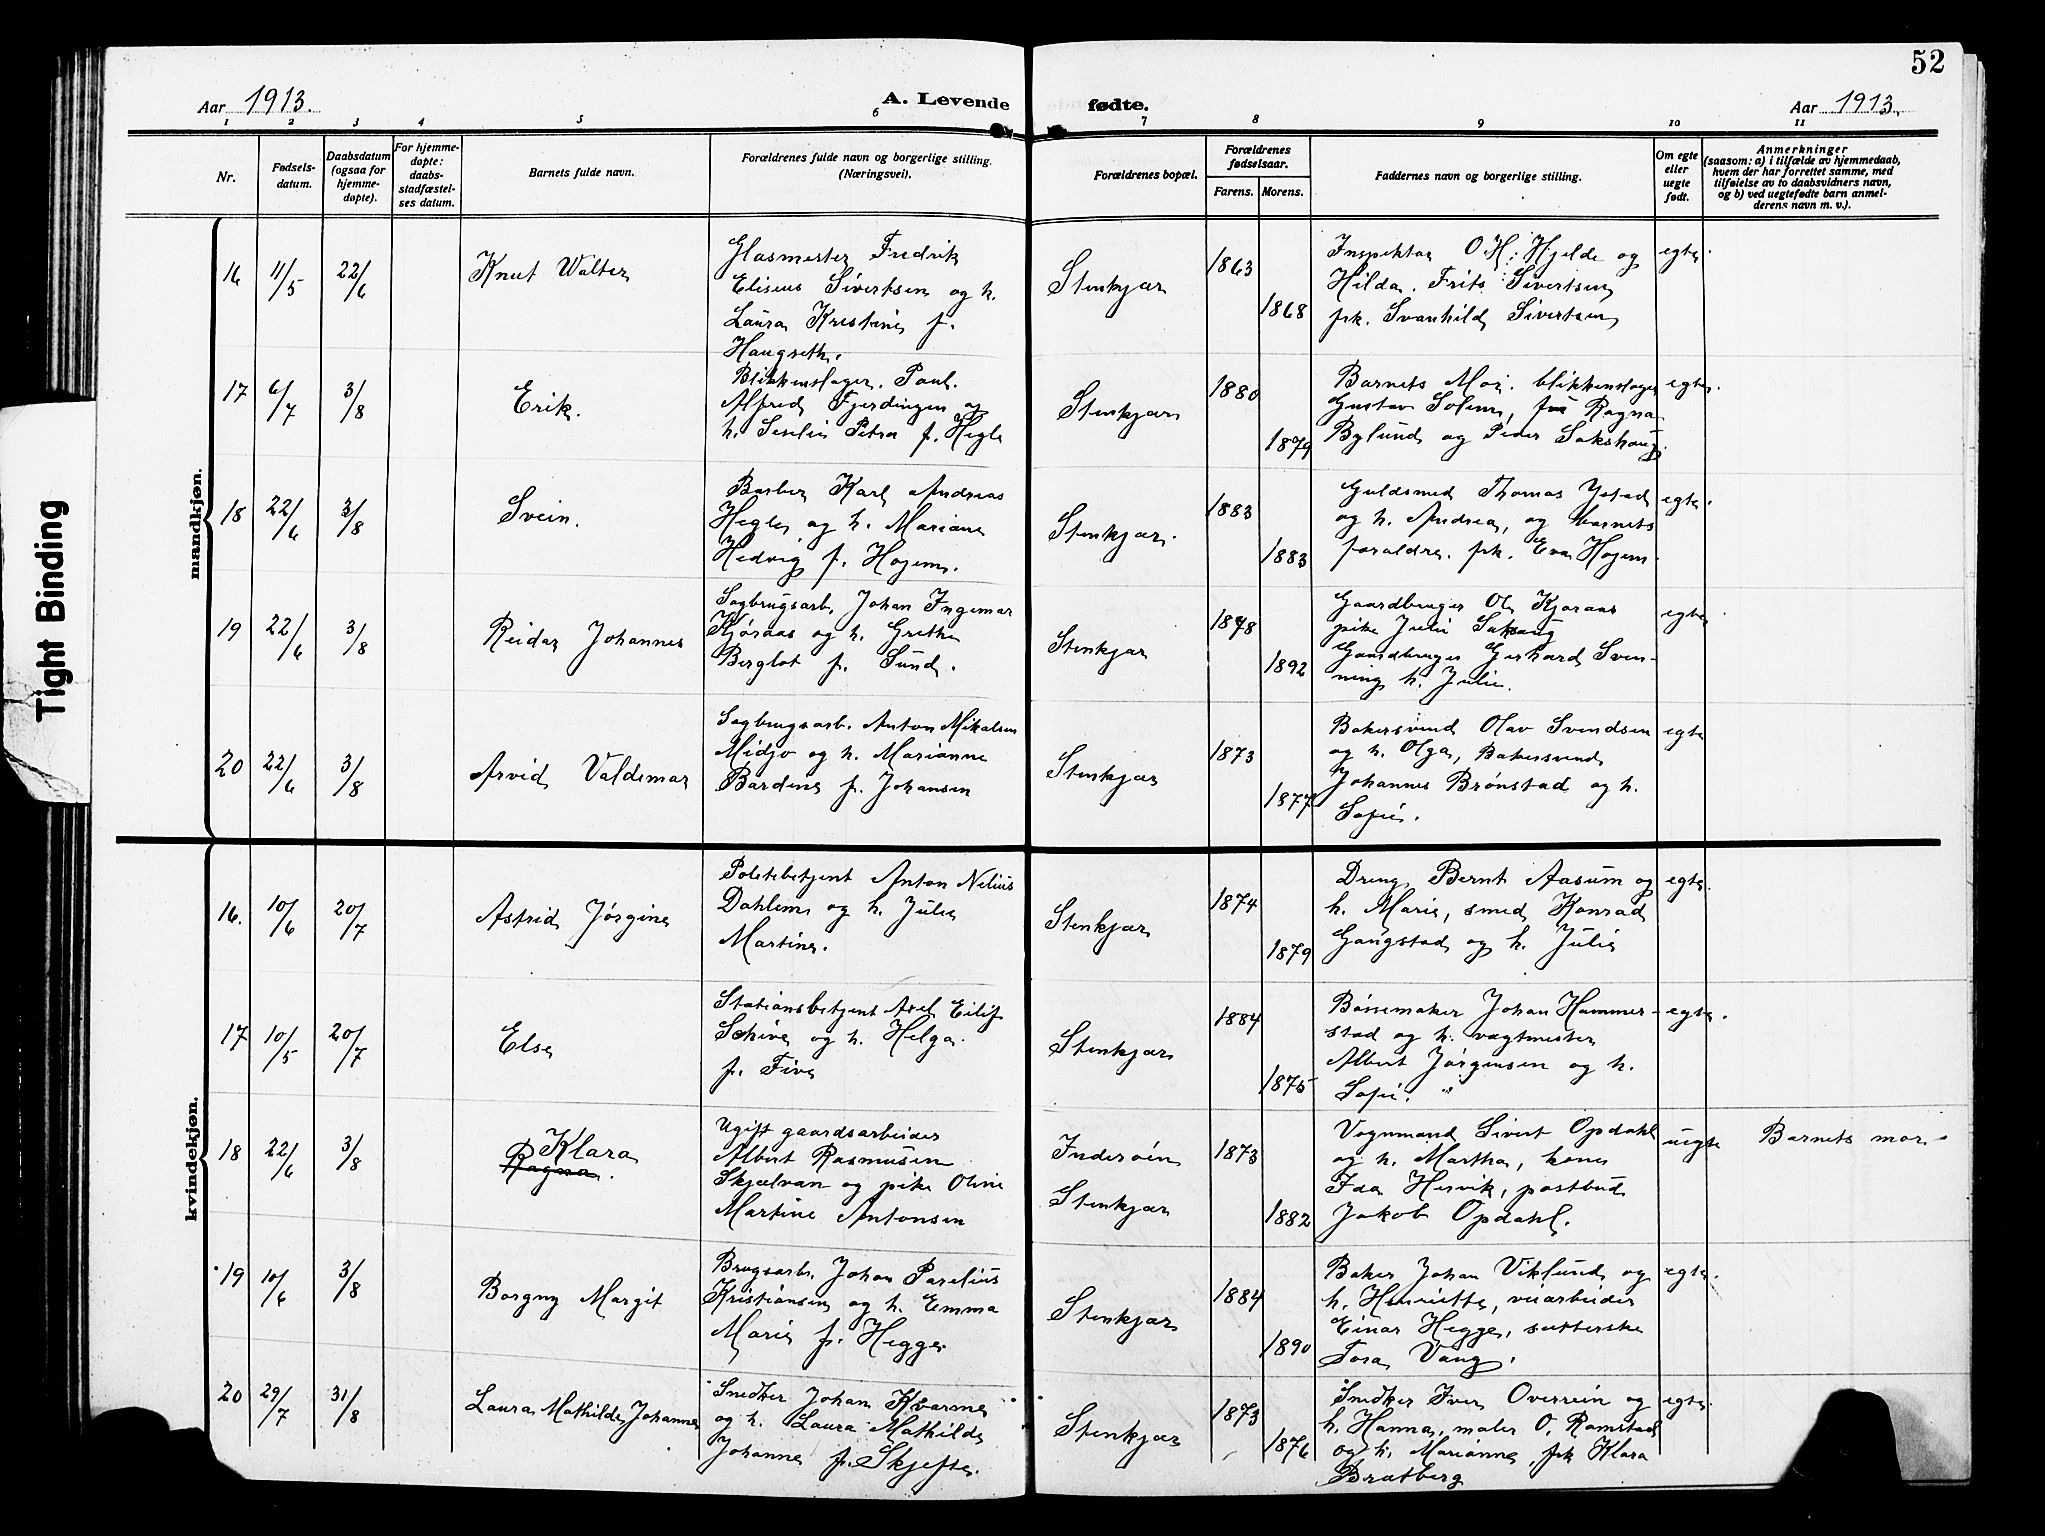 52
Aar 1913.
A. Levende
fødte.
Aar 1913.
1 2 3 4 5 6 7 8 9 10 11
Nr.
Fødsels-
datum.
Daabsdatum
(ogsaa for
hjemme-
døpte).
For hjemme-
døpte:
daabs-
stadfæstel-
ses datum.
Barnets fulde navn.
Forældrenes fulde navn og borgerlige stilling.
(Næringsvei).
Forældrenes bopæl.
Forældrenes
fødselsaar.
Farens. Morens.
Faddernes navn og borgerlige stilling.
Om egte
eller
uegte
født.
Anmerkninger
(saasom: a) i tilfælde av hjemmedaab,
hvem der har forrettet samme, med
tilføielse av to daabsvidners navn,
og b) ved uegtefødte barn anmel-
derens navn m. v.).
Tight Binding
mandkjøn.
16 11/5 22/6
Knut Walter
Glasmester Fredrik
Eliseus Sivertsen og h.
Laura Kristine f.
Haugseth.
Stenkjær
1863
1868
Inspektør O. H. Hjelde og
Hilda. Frits Sivertsen
frk. Svanhild Sivertsen
egte.
17 6/7 3/8
Erik.
Blikkenslager. Paul.
Alfred Fjerdingen og
h. Seselie Petra f. Hegle
Stenkjær
1880
1879
Barnets Mor. blikkenslager
Gustav Solem, frk Ragna
Bylund og Peder Sakshaug.
egte.
18 22/6 3/8
Svein.
Barber Karl Andreas
Hegle og h. Mariane
Hedvig f. Hojem.
Stenkjær.
1883
1883
Guldsmed Thomas Ystad
og h. Andrea, og barnets
forældre. frk. Eva Hojem.
egte.
19 22/6 3/8
Reidar Johannes
Sagbrugsarb. Johan Ingemar
Kjøraas og h. Grethe
Berglot f. Sund.
Stenkjær
1878
1892
Gaardbruger Ole Kjøraas
pike Julie Saksaug
Gaardbruger Gerhard Sven-
ning h. Julie.
egte
20 22/6 3/8
Arvid Valdemar
Sagbrugsarb. Anton Mikalsen
Midjo og h. Marianne
Bardine f. Johansen
Stenkjær
1873
1877
Bakersvend Olav Svendsen
og h. Olga, Bakersvend
Johannes Brønstad og h.
Sofie.
egte
kvindekjøn.
16. 10/6 20/7
Astrid Jørgine
Politibetjent Anton Nelius
Dahlem og h. Julie
Martine.
Stenkjær
1874
1879
Dreng Bernt Aasum og
h. Marie, smed Konrad
Gaugstad og h. Julie
egte.
17 10/5 20/7
Else
Stationsbetjent Axel Eilif
Schive og h. Helga.
f. Five
Stenkjær
1884
1875
Børsemaker Johan Hammer-
stad og h. vagtmester
Albert Jørgensen og h.
Sofie.
egte.
18 22/6 3/8
Klara
Ragna.
Ugift gaardsarbeider
Albert Rasmusen
Skjelvan og pike Oline
Martine Antonsen
Inderøen
Stenkjær
1873
1882
Vognmand Sivert Opdahl
og h. Martha, kone
Ida Hervik, postbud
Jakob Opdahl.
uegte
Barnets mor.
19 10/6 3/8
Borgny Margit
Brugsarb. Johan Parelius
Kristiansen og h. Emma
Marie f. Hegge.
Stenkjær
1884
1890
Baker Johan Viklund og
h. Henriette, veiarbeider
Einar Hegge,
Tora Vang.
egte.
20 29/7 31/8
Laura Mathilde Johanne
Snedker Johan Kvarme
og h. Laura Mathilde
Johanne f. Skjefte.
Stenkjær
1873
1876
Snedker Iver Overrein og
h. Hanna, maler O. Ramstad
og h. Marianne, frk Klara
Bratberg
egte.